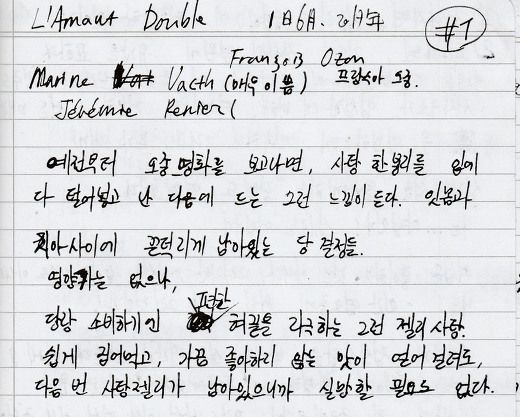 L'Amant Double 1日6月. 2017年 #1
François Ozon
Marine Vacth (매우 이쁨) 프랑수아 오종.
Jérémie Renier (
예전부터 오종 영화를 보고나면, 사탕 한 봉리를 입에
다 털어넣고 난 다음에 드는 그런 느낌이 든다. 잇몸과
치아 사이에 끈덕리게 남아있는 당 결정들.
영양가는 없으나,
당장 소비하기엔 편한 혀끝을 자극하는 그런 젤리 사탕.
쉽게 집어먹고, 가끔 좋아하리 않는 맛이 얻어 걸려도,
다음 번 사탕젤리가 남아있으니까 실망할 필요도 없다.